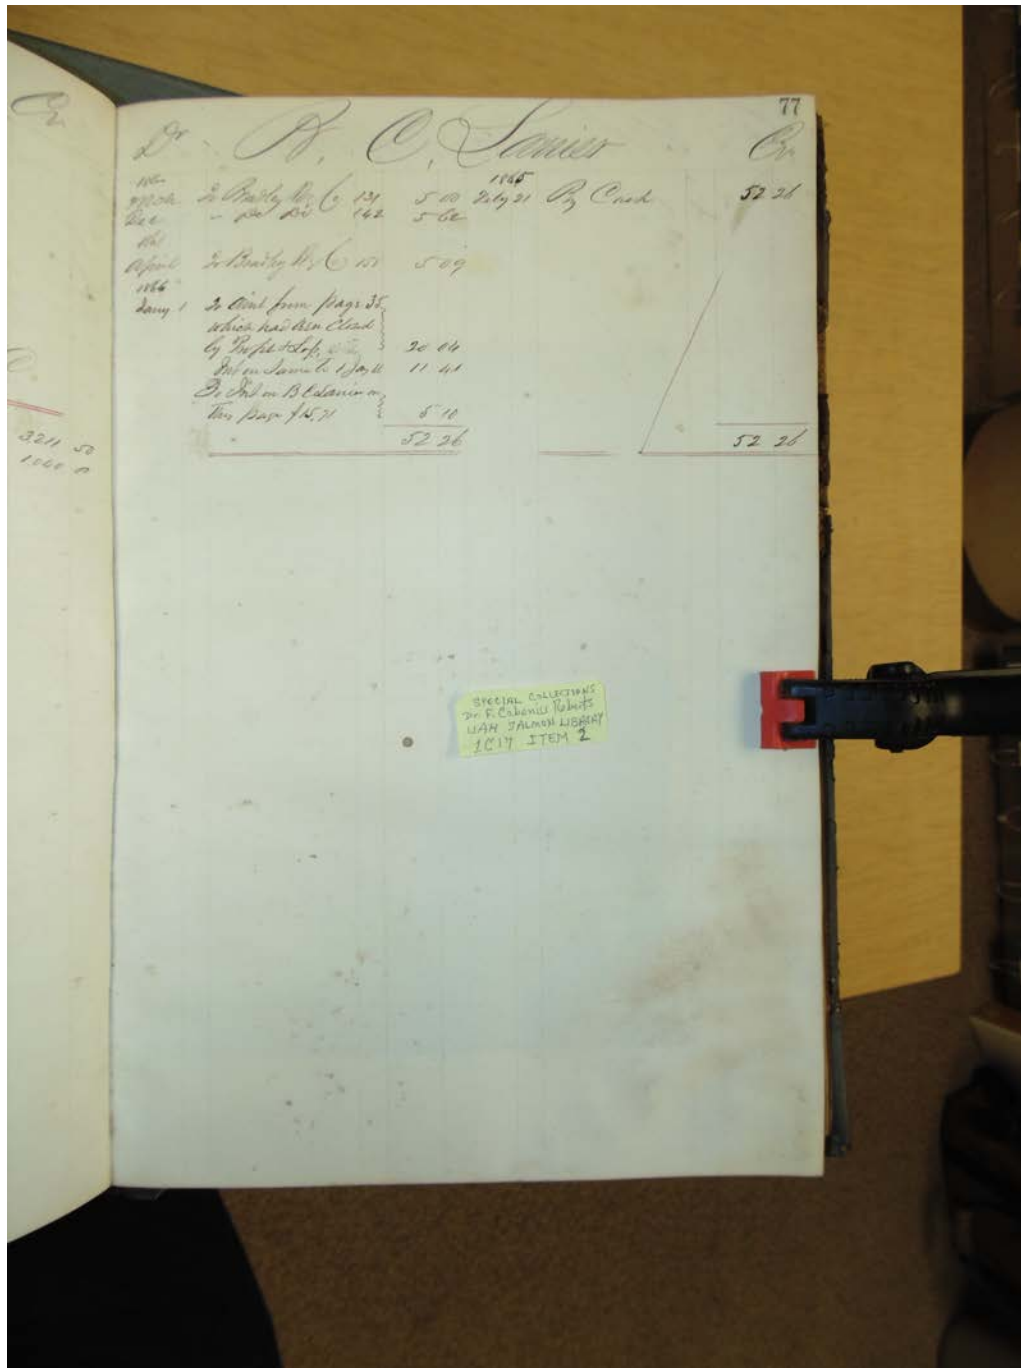 Cr
77
Dr B. C. Lanier Cr
March To Bradley W. Co 131 5 00 1865 July 21 By Cash 52 26
Dec " Do Do 142 5 62
April To Bradley W. Co 150 5 09
1866
Jany 1 To Amt from page 35
which had been Closed
by Profit & Loss 20 04
Int on Same to 1 Jay 11 41
To Int on B C Lanier on
this page $15,71 5 10
52 26 52 26
3211 50
1000 00
SPECIAL COLLECTIONS
Dr. F. Cabaniss Roberts
UAH SALMON LIBRARY
1C17 ITEM 2